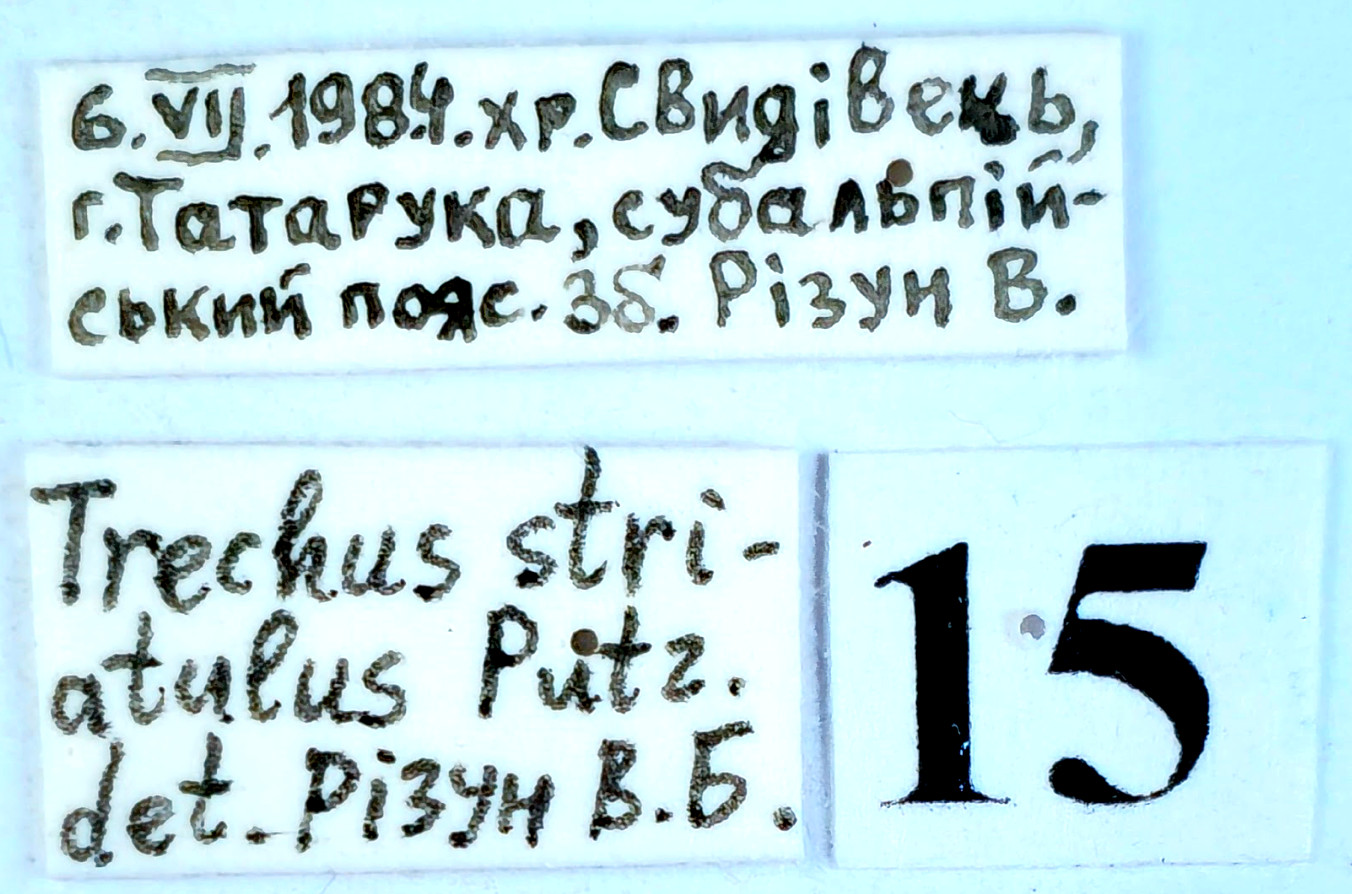 6.VII.1984.хр.Свидівець,
г.Татарука, субальпій-
ський пояс. Зб. Різун В.
Trechus stri-
atulus Putz.
det. Різун В.Б.
15